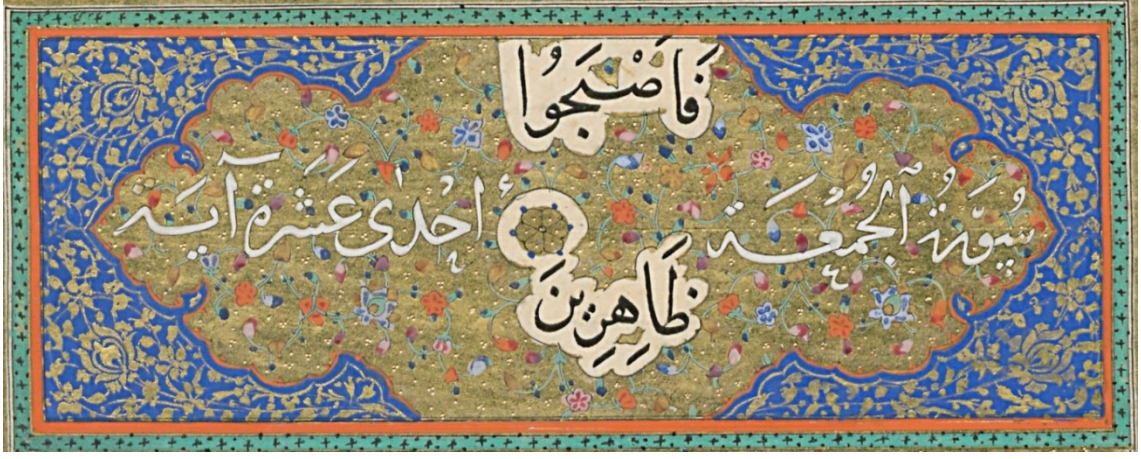 فَأَصْبَحُوا
سُورَةُ ٱلْجُمُعَة أحْدٰى عَشْرَةَ آيَة
ظَاهِرِينَ